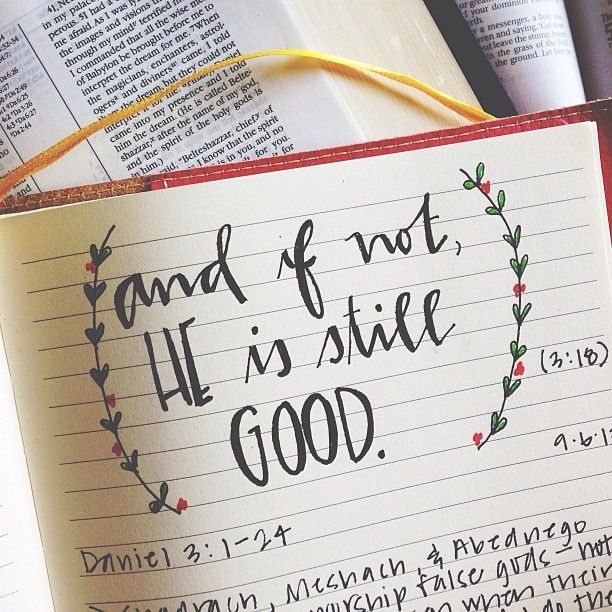 41. Ne
in my palace
perous. 5 I had a
me afraid. As I was ly
the images and visions th
through my mind terrified m
I commanded that all the wise me
of Babylon be brought before me to
interpret the dream for me. 7 When
the magicians, enchanters, astrol-
ogers and diviners came, I told
them the dream, but they could not
interpret it for me.
came into my presence and I told
him the dream. (He is called Belte-
shazzar, after the name of my god,
and the spirit of the holy gods is
said, "Belteshazzar, chief of
I know that the spirit
is in you, and no
for you.
your dominion
a messenger, a holy
and saying, 'Cut down
but leave the stump
the grass of the field
the ground. Let him
and if not,
HE is still
GOOD.
(3:18)
9.6.13
Daniel 3:1-24
Shadrach, Meshach, & Abednego
worship false gods - not
when their
do th